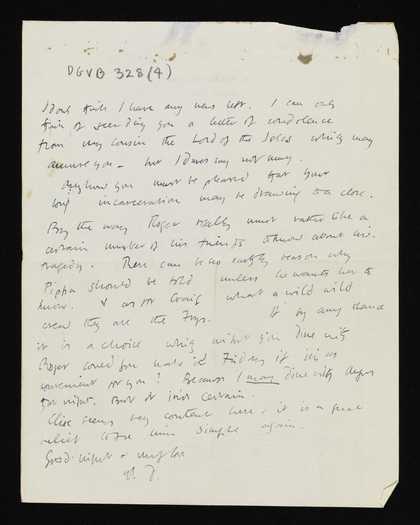 DGVB 328(4)
I don't think I have any news left. I can only
think of sending you a letter of condolence
from my cousin the Lord of the Isles which may
amuse you – but I daresay not many.
Anyhow you must be pleased that your
long incarceration may be drawing to a close.
By the way Roger really must rather like a
certain number of his friends to know about his
tragedy. There can be no earthly reason why
Pippa should be told unless he wants her to
know. & as for Craig what a wild wild
crew they are the Frys. If by any chance
it is a choice which night you dine with
Roger could you make it Friday if it's as
convenient for you? Because I may dine with
for night. But it isn't certain.
Clive seems very content here & it is a great
relief to see him simple again.
Good-night & my love